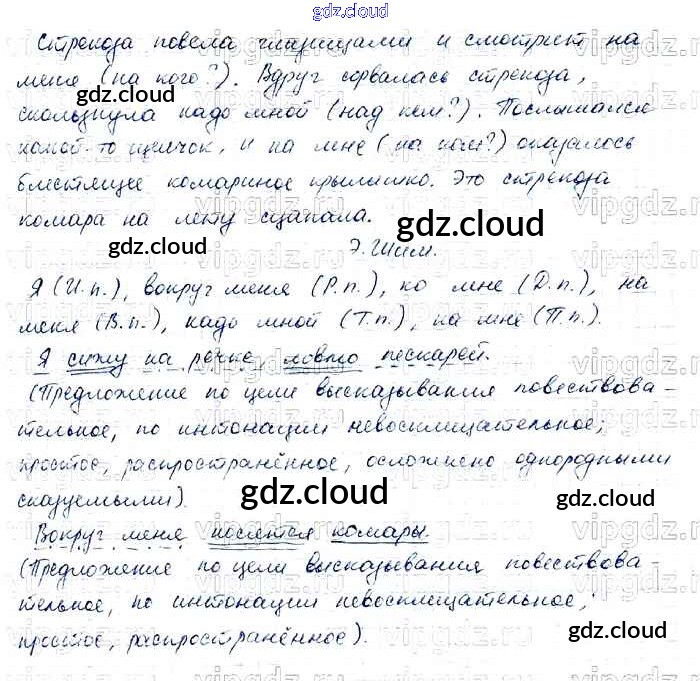 gdz.cloud
Стрекоза повела глазищами и смотрит на
меня (на кого?). Вдруг сорвалась стрекоза,
gdz.cloud
скользнула надо мной (над кем?). Послышался
какой-то щелчок, и на мне (на ком?) оказалось
блестящее комариное крылышко. Это стрекоза
комара на лету сцапала.
gdz.cloud
gdz.cloud
Э. Шим.
gdz.cloud
Я (И.п.), вокруг меня (Р.п.), ко мне (Д.п.), на
меня (В.п.), надо мной (Т.п.), на мне (П.п.).
Я сижу на речке, ловлю пескарей.
(Предложение по цели высказывания повествова-
тельное, по интонации невосклицательное,
простое, распространённое, осложнено однородными
сказуемыми).
gdz.cloud
gdz.cloud
Вокруг меня носятся комары.
(Предложение по цели высказывания повествова-
тельное, по интонации невосклицательное,
простое, распространённое).
gdz.cloud